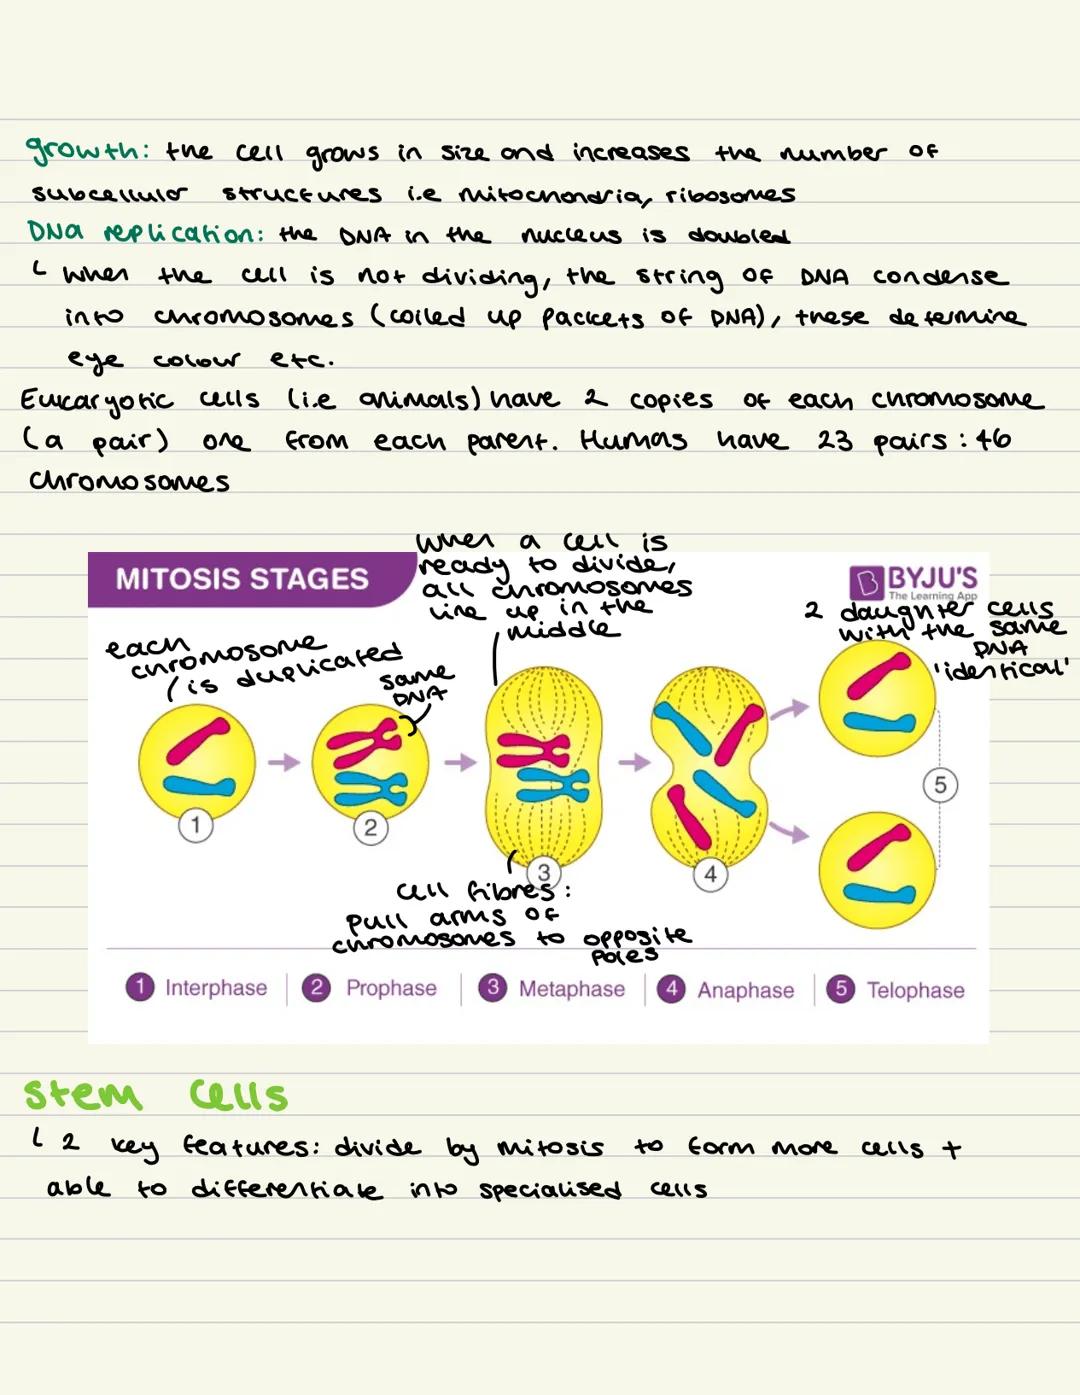 growth: the cell grows in size and increases the number of
subcellular structures i.e mitochondria, ribosomes
DNA replication: the DNA in the nucleus is doubled
when the cell is not dividing, the string of DNA condense
into chromosomes (coiled up packets of DNA), these determine
eye colour etc.
Eukaryotic cells (i.e animals) have 2 copies of each chromosome
(a pair) one from each parent. Humas have 23 pairs : 46
chromosomes
MITOSIS STAGES
when a cell is
ready to divide,
all chromosomes
line up in the
middle
BYJU'S
The Learning App
2 daughter cells
with the same
DNA
'identical'
each
chromosome
is duplicated
same
DNA
1
2
3
4
5
cell fibres:
pull arms of
chromosomes to opposite
poles
1 Interphase
2 Prophase
3 Metaphase
4 Anaphase
5 Telophase
stem cells
2 key features: divide by mitosis to form more cells +
able to differentiate into specialised cells